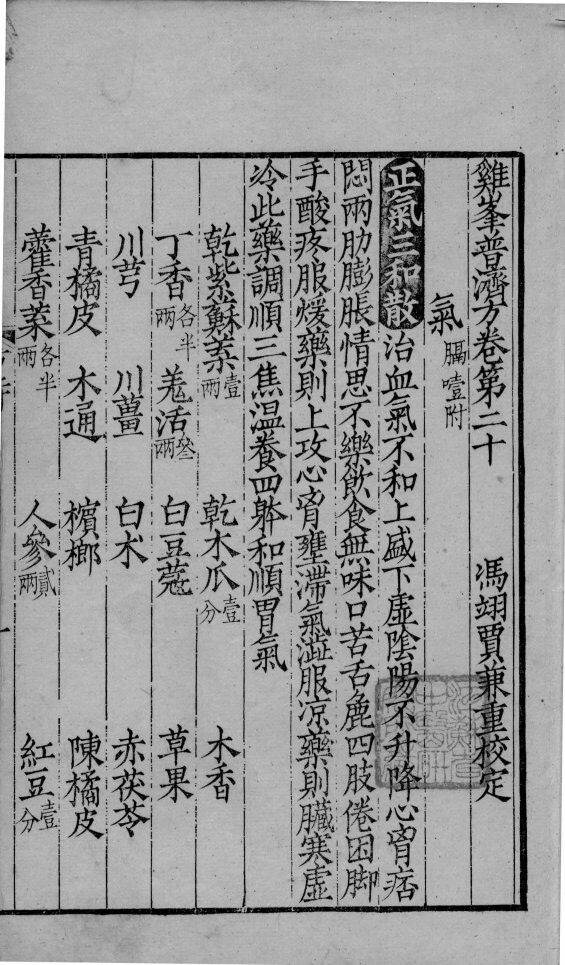 雞峯普濟方卷第二十 馮翊賈兼重校定
氣 膈噎附
正氣三和散 治血氣不和上盛下虛陰陽不升降心胷痞
悶兩肋膨脹情思不樂飲食無味口苦舌麄四肢倦困脚
手酸疼服煖藥則上攻心胷壅滯氣澁服凉藥則臟寒虛
冷此藥調順三焦温養四體和順胃氣
乾紫蘇葉壹兩 乾木瓜壹分 木香
丁香各半兩 羌活叁兩 白豆蔻 草果
川芎 川薑 白朮 赤茯苓
青橘皮 木通 檳榔 陳橘皮
藿香葉各半兩 人參貳兩 紅豆壹分